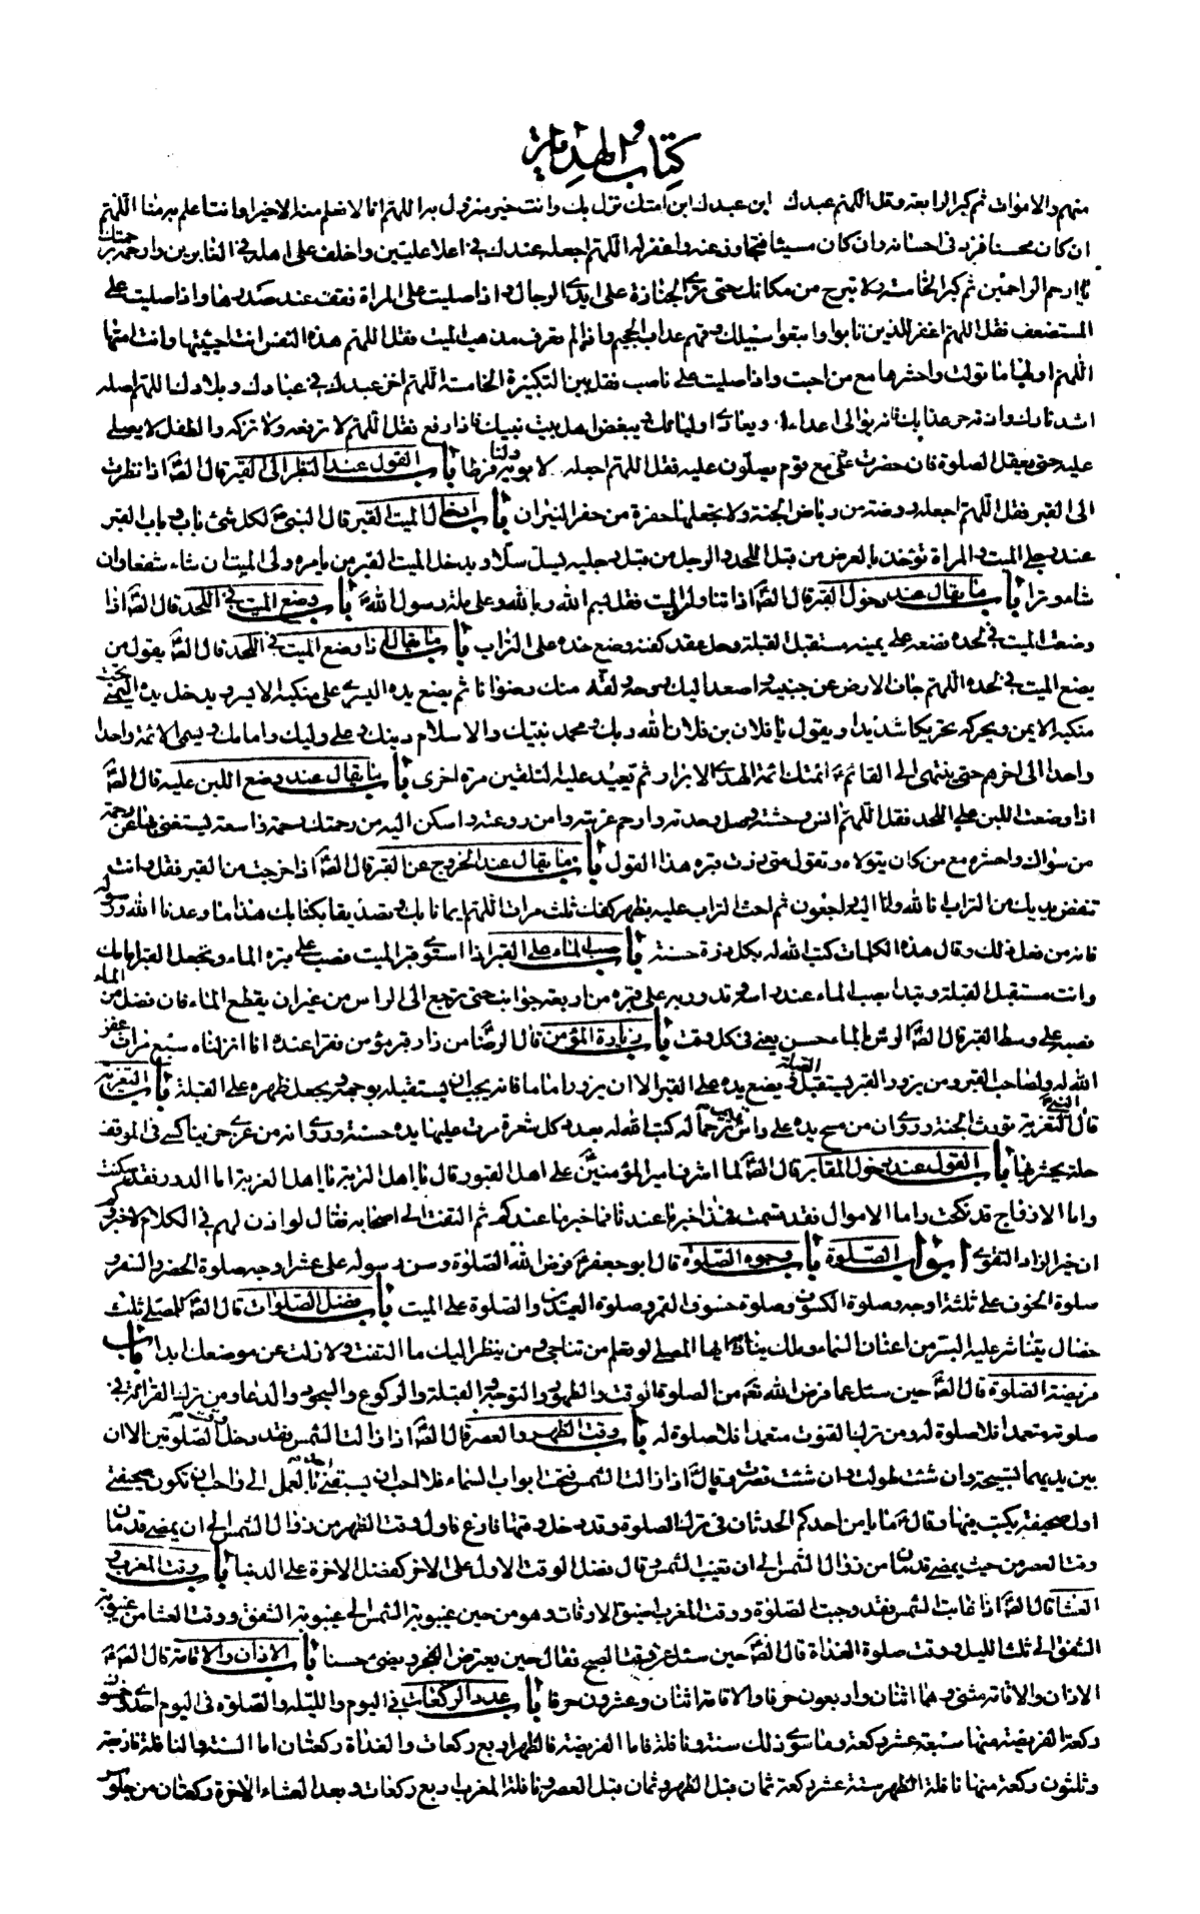 كتاب الهداية
منهم والاموات ثم كبر الرابعة وقل اللهم عبدك ابن عبدك ابن امتك نزل بك وانت خير منزول به اللهم انا لا نعلم منه الا خيرا وانت اعلم به منا اللهم
ان كان محسنا فزد فى احسانه وان كان مسيئا فتجاوز عنه واغفر له اللهم اجعله عندك فى اعلا عليين واخلف على اهله فى الغابرين وارحمه برحمتك
يا ارحم الراحمين ثم كبر الخامسة ولا تبرح من مكانك حتى ترى الجنازة على ايدى الرجال واذا صليت على المراة فقف عند صدرها واذا صليت على
المستضعف فقل اللهم اغفر للذين تابوا واتبعوا سبيلك وقهم عذاب الجحيم واذا لم تعرف مذهب الميت فقل اللهم هذه النفس انت احييتها وانت امتها
اللهم اولها ما تولت واحشرها مع من احبت واذا صليت على ناصب فقل بين التكبيرة الخامسة اللهم اخز عبدك فى عبادك وبلادك اللهم اصله
اشد نارك واذقه حر عذابك فانه يوالى اعداءك ويعادى اوليائك ويبغض اهل بيت نبيك فاذا رفع فقل اللهم لا ترفعه ولا تزكه والطفل لا يصلى
عليه حتى يعقل الصلوة فان حضرت على مع قوم يصلون عليه فقل اللهم اجعله لابويه ولنا فرطا باب القول عند النظر الى القبر قال الص اذا نظرت
الى القبر فقل اللهم اجعله روضة من رياض الجنة ولا تجعلها حفرة من حفر النيران باب ادخال الميت القبر قال النبى لكل شئ باب وباب القبر
عند رجلى الميت والمراة تؤخذ بالعرض من قبل اللحد والرجل من قبل رجليه ليسل سلا ويدخل الميت القبر من يامره ولى الميت ان شاء شفعا وان
شاء وترا باب ما يقال عند دخول القبر قال الص اذا تناولت الميت فقل بسم الله وبالله وعلى ملة رسول الله باب وضع الميت فى اللحد قال الص اذا
وضعت الميت فى لحده فضعه على يمينه مستقبل القبلة وحل عقد كفنه وضع خده على التراب باب ما يقال اذا وضع الميت فى اللحد قال الص يقول من
يضع الميت فى لحده اللهم جاف الارض عن جنبيه واصعد اليك روحه ولقه منك رضوانا ثم يضع يده اليسرى على منكبه الايسر ويدخل يده اليمنى تحت
منكبه الايمن ويحركه تحريكا شديدا ويقول يا فلان بن فلان الله ربك ومحمد نبيك والاسلام دينك وعلى وليك وامامك ويسمى الائمة واحدا
واحدا الى اخرهم حتى ينتهى الى القائم ائمتك ائمة الهدى الابرار ثم تعيد عليه التلقين مرة اخرى باب ما يقال عند وضع اللبن عليه قال الص
اذا وضعت اللبن على اللحد فقل اللهم انس وحشته وصل وحدته وارحم غربته وامن روعته واسكن اليه من رحمتك رحمة واسعة يستغنى بها عن رحمة
من سواك واحشره مع من كان يتولاه وتقول متى زرت قبره هذا القول باب ما يقال عند الخروج عن القبر قال الص اذا خرجت من القبر فقل وانت
تنفض يديك من التراب انا لله وانا اليه راجعون ثم احث التراب عليه بظهر كفك ثلث مرات اللهم ايمانا بك وتصديقا بكتابك هذا ما وعدنا الله ورسوله
فانه من فعل ذلك وقال هذه الكلمات كتب الله له بكل ذرة حسنة باب صب الماء على القبر اذا استوى قبر الميت فصب على قبره الماء وتجعل القبر امامك
وانت مستقبل القبلة وتبدا بصب الماء عند راسه وتدور به على قبره من اربعة جوانبه حتى ترجع الى الراس من غير ان يقطع الماء فان فضل من الماء
فصبه على وسط القبر قال الص الرش بالماء حسن يعنى فى كل وقت باب زيارة المؤمن قال الرضا من زار قبر مؤمن فقرا عنده انا انزلناه سبع مرات غفر
الله له ولصاحب القبر ومن يزور القبر يستقبل القبلة ويضع يده على القبر الا ان يزور اماما فانه يجب ان يستقبله بوجهه ويجعل ظهره على القبلة باب التعزية
قال النبى التعزية تورث الجنة وروى ان من مسح يده على راس يتيم ترحما له كتب الله له بعدد كل شعرة مرت عليها يده حسنة وروى انه من عزى حزينا كسى فى الموقف
حلة يحبر بها باب القول عند دخول المقابر قال الص لما اشرف امير المؤمنين على اهل القبور قال يا اهل التربة يا اهل الغربة اما الدور فقد سكنت
واما الازواج قد نكحت واما الاموال فقد قسمت فهذا خبر ما عندنا فما خبر ما عندكم ثم التفت الى اصحابه فقال لو اذن لهم فى الكلام لاخبروكم
ان خير الزاد التقوى ابواب الصلوة باب وجوه الصلوة قال ابو جعفر فرض الله الصلوة وسن رسوله على عشر اوجه صلوة الحضر والسفر و
صلوة الخوف على ثلثة اوجه وصلوة الكسوف وصلوة خسوف القمر وصلوة العيدين والصلوة على الميت باب فضل الصلوات قال الص للمصلى ثلث
خصال يتناثر عليه البر من اعنان السماء وملك يناديه ايها المصلى لو تعلم من تناجى ومن ينظر اليك ما التفت ولا زلت عن موضعك ابدا باب
فريضة الصلوة قال الص حين سئل عما فرض الله تعم من الصلوة الوقت والطهور والتوجه والقبلة والركوع والسجود والدعاء ومن ترك القراءة فى
صلوته متعمدا فلا صلوة له ومن ترك القنوت متعمدا فلا صلوة له باب وقت الظهر والعصر قال الص اذا زالت الشمس فقد دخل وقت الصلوتين الا ان
بين يديهما السبحة وان شئت طولت وان شئت قصرت وقال اذا زالت الشمس فتحت ابواب السماء فلا احب ان يسبقنى احد بالعمل الى واحب ان تكون صحيفتى
اول صحيفة يكتب فيها وقال ما يامن احدكم الحدثان فى ترك الصلوة وقد دخل وقتها فارغ فاول وقت الظهر من زوال الشمس الى ان يمضى قدمان
وقت العصر من حيث يمضى قدمان من زوال الشمس الى ان تغيب الشمس وقال فضل الوقت الاول على الاخر كفضل الاخرة على الدنيا باب وقت المغرب و
العشا قال الص اذا غابت الشمس فقد وجبت الصلوة ووقت المغرب اضيق الاوقات وهو من حين غيبوبة الشمس الى غيبوبة الشفق ووقت العشا من غيبوبة
الشفق الى ثلث الليل ووقت صلوة الغداة قال الص حين سئل عن وقت الصبح فقال حين يعترض الفجر ويضئ حسنا باب الاذان والاقامة قال الص
الاذان والاقامة مثنى وهما اثنان واربعون حرفا والاقامة اثنان وعشرون حرفا باب عدد الركعات فى اليوم والليلة والصلوة فى اليوم احدى وخمسون
ركعة الفريضة منها سبعة عشر ركعة وما سوى ذلك سنة ونافلة فاما الفريضة فالظهر اربع ركعات والغداة ركعتان اما السنة والنافلة فاربعة
وثلثون ركعة منها نافلة الظهر ستة عشر ركعة ثمان قبل الظهر وثمان قبل العصر ونافلة المغرب اربع ركعات وبعد العشاء الاخرة ركعتان من جلوس